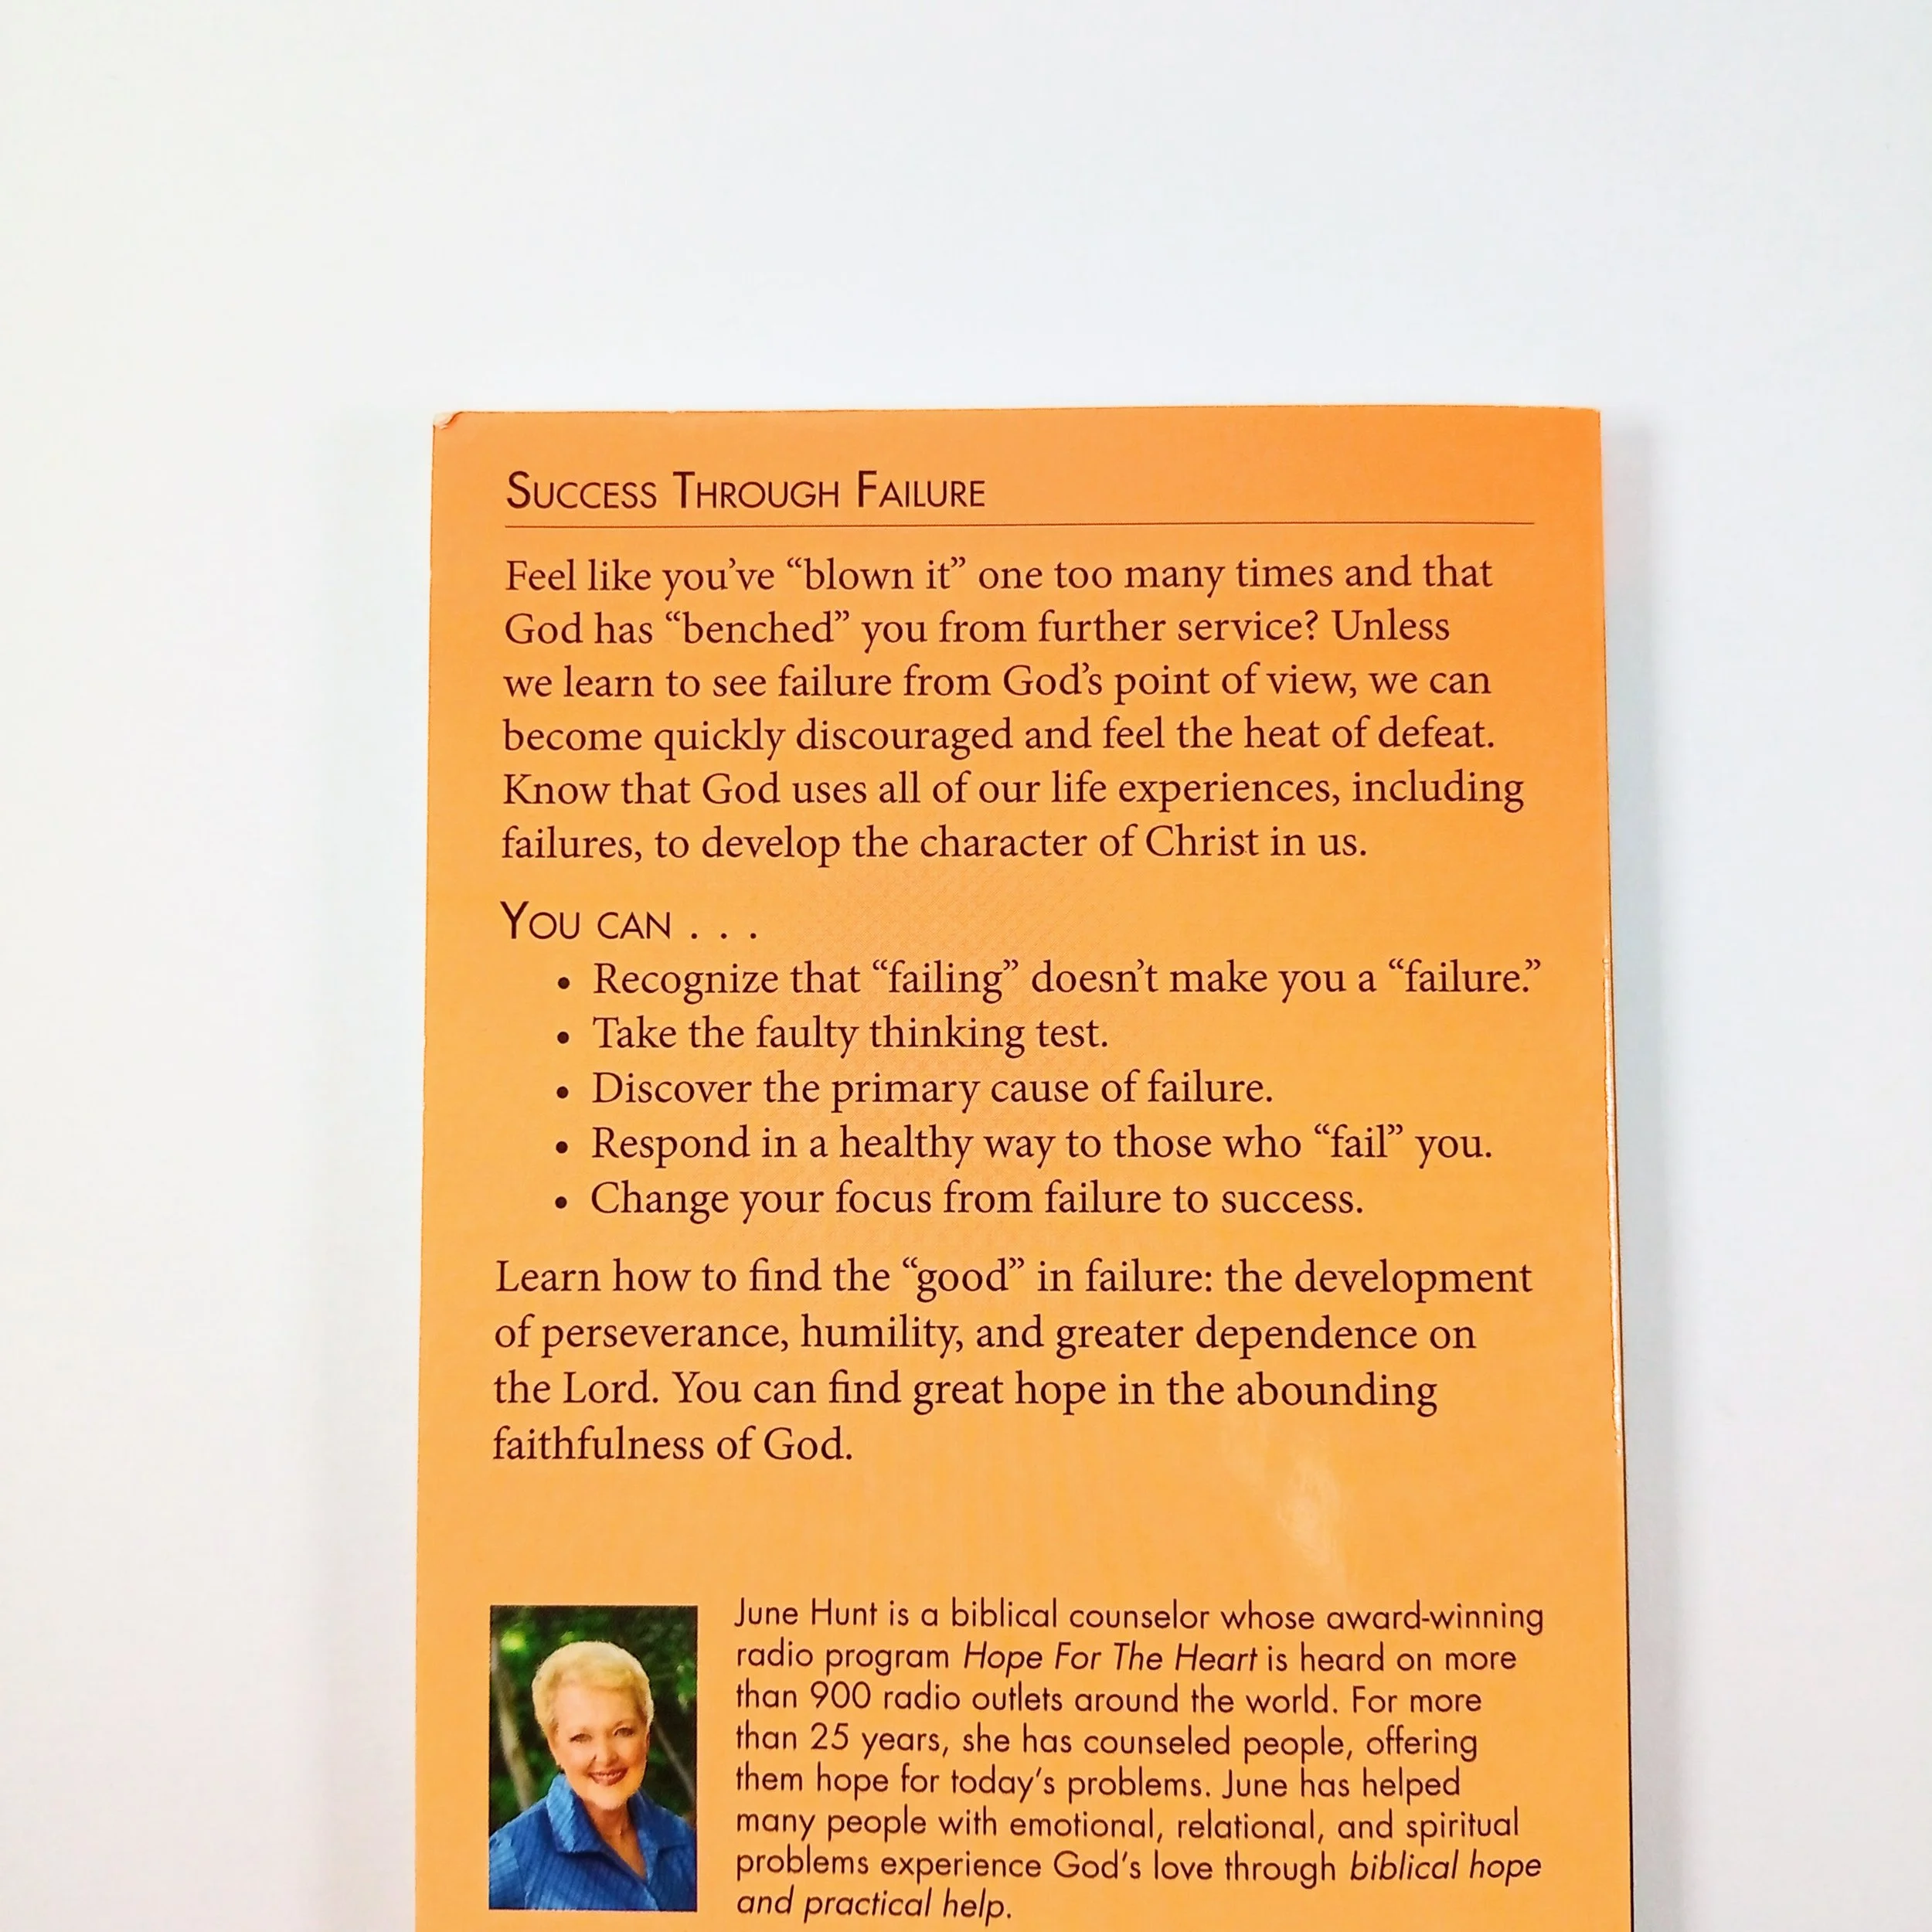 Success Through Failure
Feel like you’ve “blown it” one too many times and that
God has “benched” you from further service? Unless
we learn to see failure from God’s point of view, we can
become quickly discouraged and feel the heat of defeat.
Know that God uses all of our life experiences, including
failures, to develop the character of Christ in us.
You can . . .
• Recognize that “failing” doesn’t make you a “failure.”
• Take the faulty thinking test.
• Discover the primary cause of failure.
• Respond in a healthy way to those who “fail” you.
• Change your focus from failure to success.
Learn how to find the “good” in failure: the development
of perseverance, humility, and greater dependence on
the Lord. You can find great hope in the abounding
faithfulness of God.
June Hunt is a biblical counselor whose award-winning
radio program Hope For The Heart is heard on more
than 900 radio outlets around the world. For more
than 25 years, she has counseled people, offering
them hope for today’s problems. June has helped
many people with emotional, relational, and spiritual
problems experience God’s love through biblical hope
and practical help.